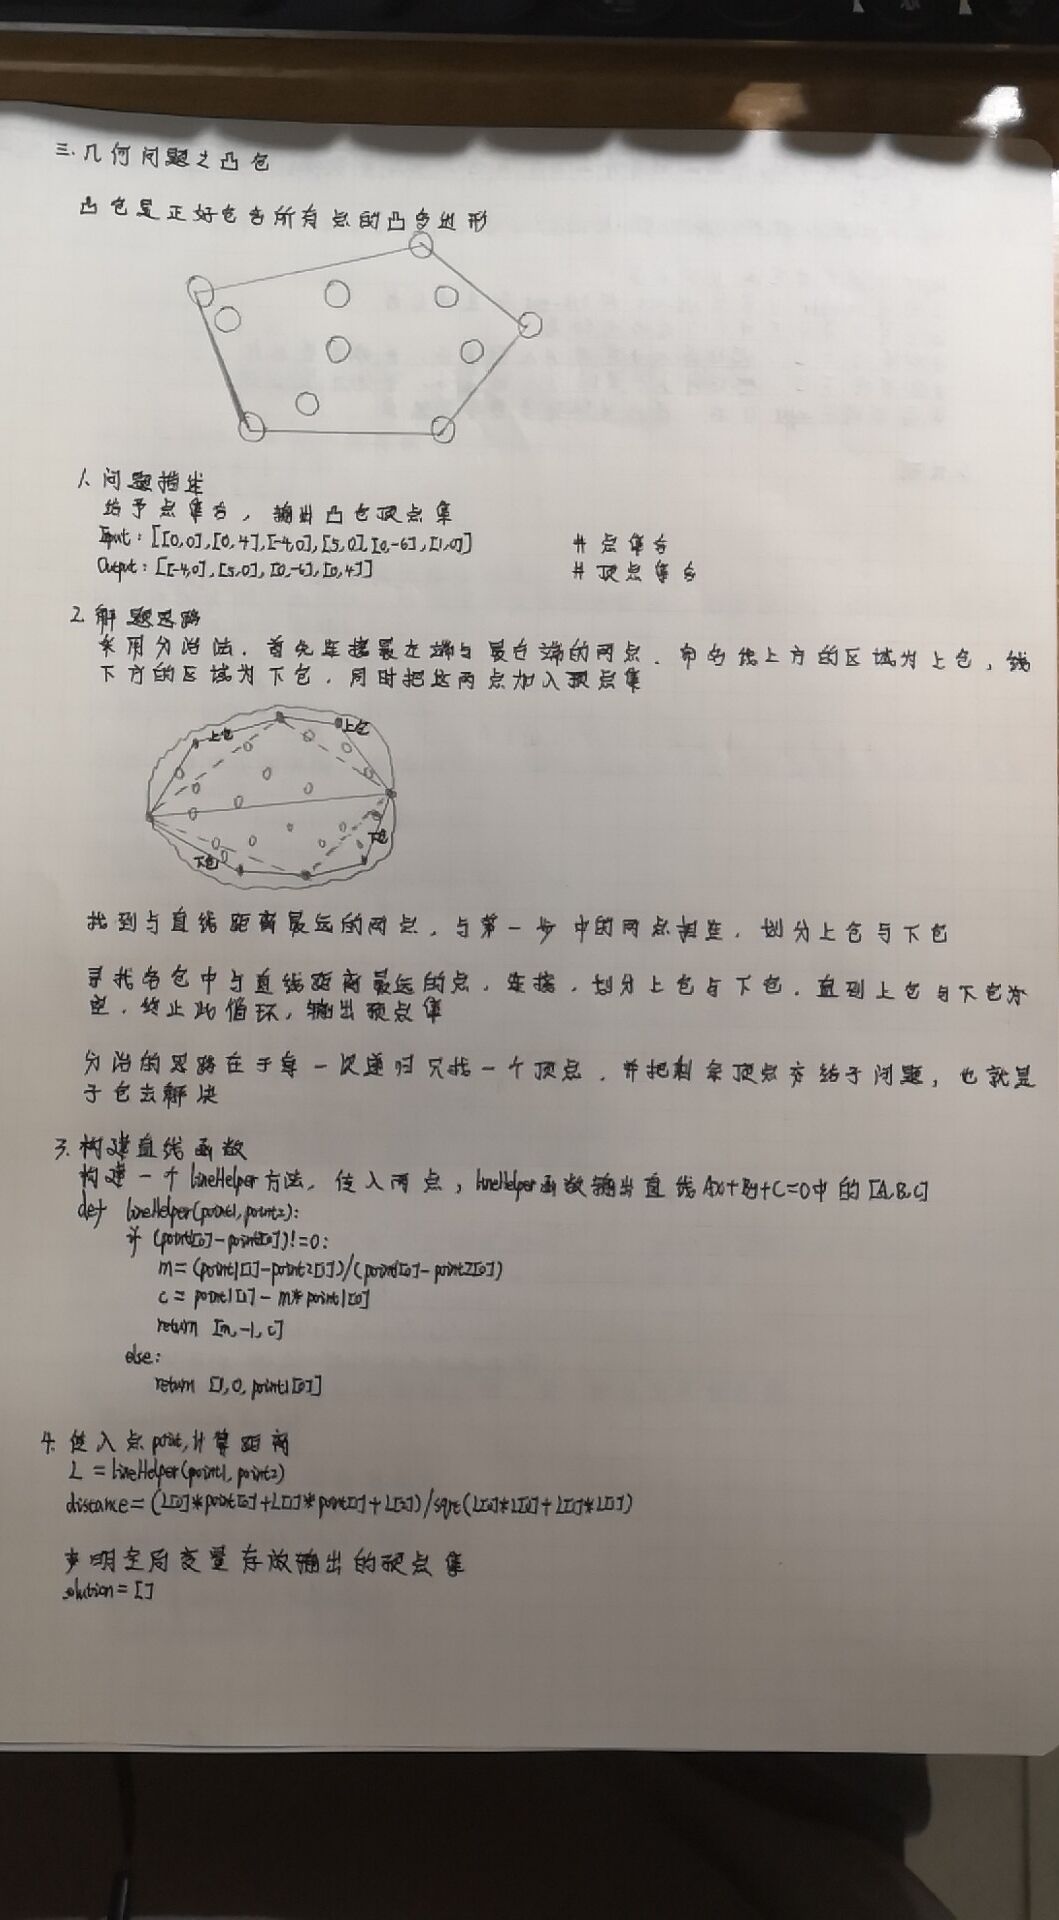 三.几何问题之凸包
凸包是正好包含所有点的凸多边形
1.问题描述
给予点集合，输出凸包顶点集
Input：[[0,0],[0,4],[-4,0],[5,0],[0,-6],[1,0]] #点集合
Output：[[-4,0],[5,0],[0,-6],[0,4]] #顶点集合
2.解题思路
采用分治法，首先连接最左端与最右端的两点，命名线上方的区域为上包，线
下方的区域为下包，同时把这两点加入顶点集
上包 上包
下包 下包
找到与直线距离最远的两点，与第一步中的两点相连，划分上包与下包
寻找各包中与直线距离最远的点，连接，划分上包与下包，直到上包与下包为
空，终止此循环，输出顶点集
分治的思路在于每一次递归只找一个顶点，并把剩余顶点交给子问题，也就是
子包去解决
3.构建直线函数
构建一个lineHelper方法，传入两点，lineHelper函数输出直线Ax+By+C=0中的[A,B,C]
def lineHelper(point1,point2):
if (point1[0]-point2[0])!=0:
m=(point1[1]-point2[1])/(point1[0]-point2[0])
c=point1[1]-m*point1[0]
return [m,-1,c]
else:
return [1,0,point1[0]]
4.传入点point,计算距离
L=lineHelper(point1,point2)
distance=(L[0]*point[0]+L[1]*point[1]+L[2])/sqrt(L[0]*L[0]+L[1]*L[1])
声明全局变量存放输出的顶点集
solution=[]